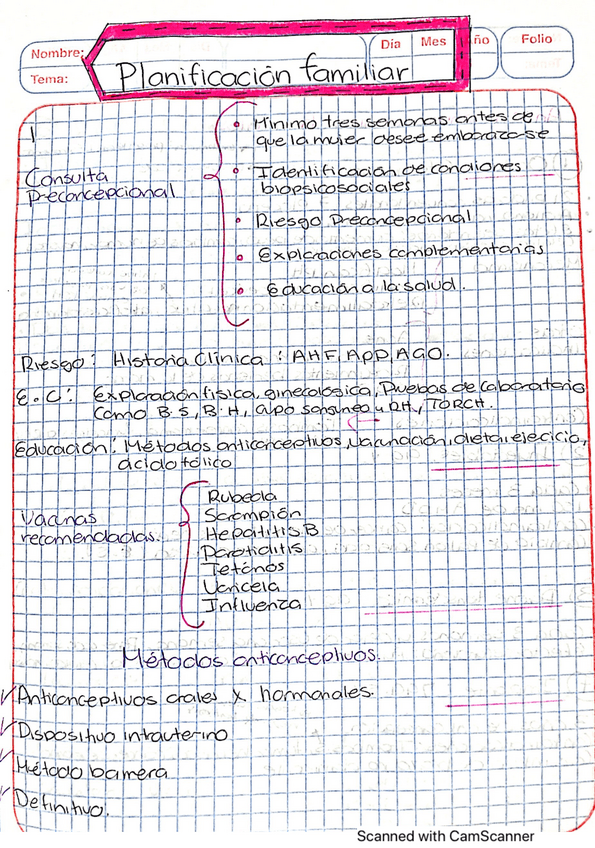 Nombre:
Día Mes ño Folio
Tema:
Planificación familiar
1
Consulta
preconcepcional
Minimo tres semanas antes de
que la mujer desee embarazarse
Identificación de condiones
biopsicosociales
Riesgo Preconcepcional
Exploraciones complementarias
Educación a la salud.
Riesgo: Historia Clinica: AHF, APP, AGO.
E.C: Exploración fisica, ginecologica, Pruebas de laboratorio
como B.S, B.H, grupo sanguneo y RH, TORCH.
Educación: Métodos anticonceptivos, vacunación, dieta, ejecicio,
ácido fólico
Vacunas
recomendadas.
Rubeola
Sarampión
Hepatitis B
Parotiditis
Tetános
Varicela
Influenza
Métodos anticonceptivos.
Anticonceptivos orales x hormonales.
Dispositivo intrauterino
Método barrera
Definitivo.
Scanned with CamScanner